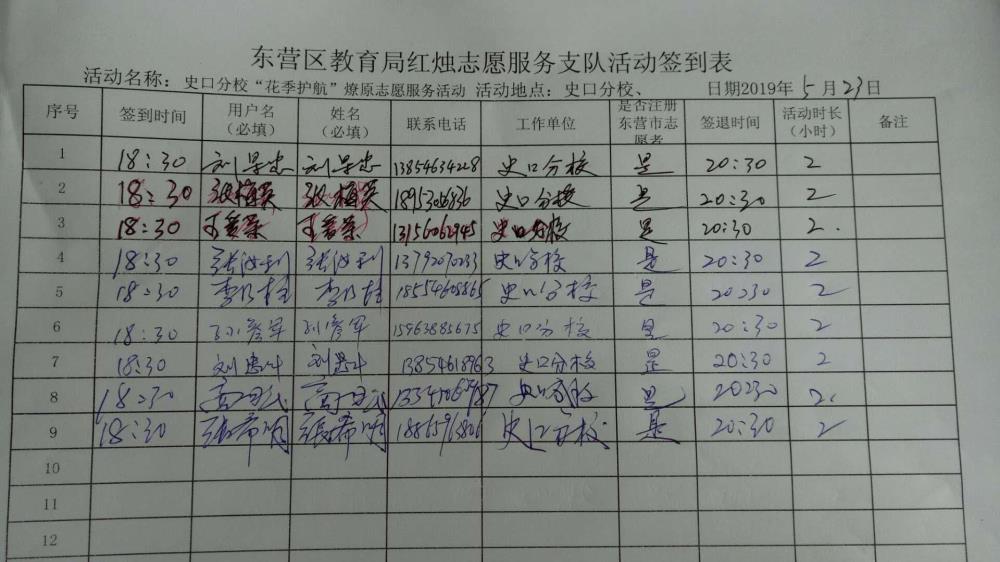 东营区教育局红烛志愿服务支队活动签到表
活动名称：史口分校“花季护航”燎原志愿服务活动 活动地点：史口分校、 日期2019年 5 月 23日
序号 签到时间 用户名（必填） 姓名（必填） 联系电话 工作单位 是否注册东营市志愿者 签退时间 活动时长（小时） 备注
1 18:30 13854634228 史口分校 是 20:30 2
2 18:30 张梅英 张梅英 史口分校 是 20:30 2
3 18:30 13156062945 史口分校 是 20:30 2.
4 18:30 13792070233 史口分校 是 20:30 2
5 18:30 18554608865 史口分校 是 20:30 2
6 18:30 孙彦军 孙彦军 15963885675 史口分校 是 20:30 2
7 18:30 13854618963 史口分校 是 20:30 2
8 18:30 史口分校 是 20:30 2.
9 18:30 张希明 张希明 史口分校 是 20:30 2
10
11
12